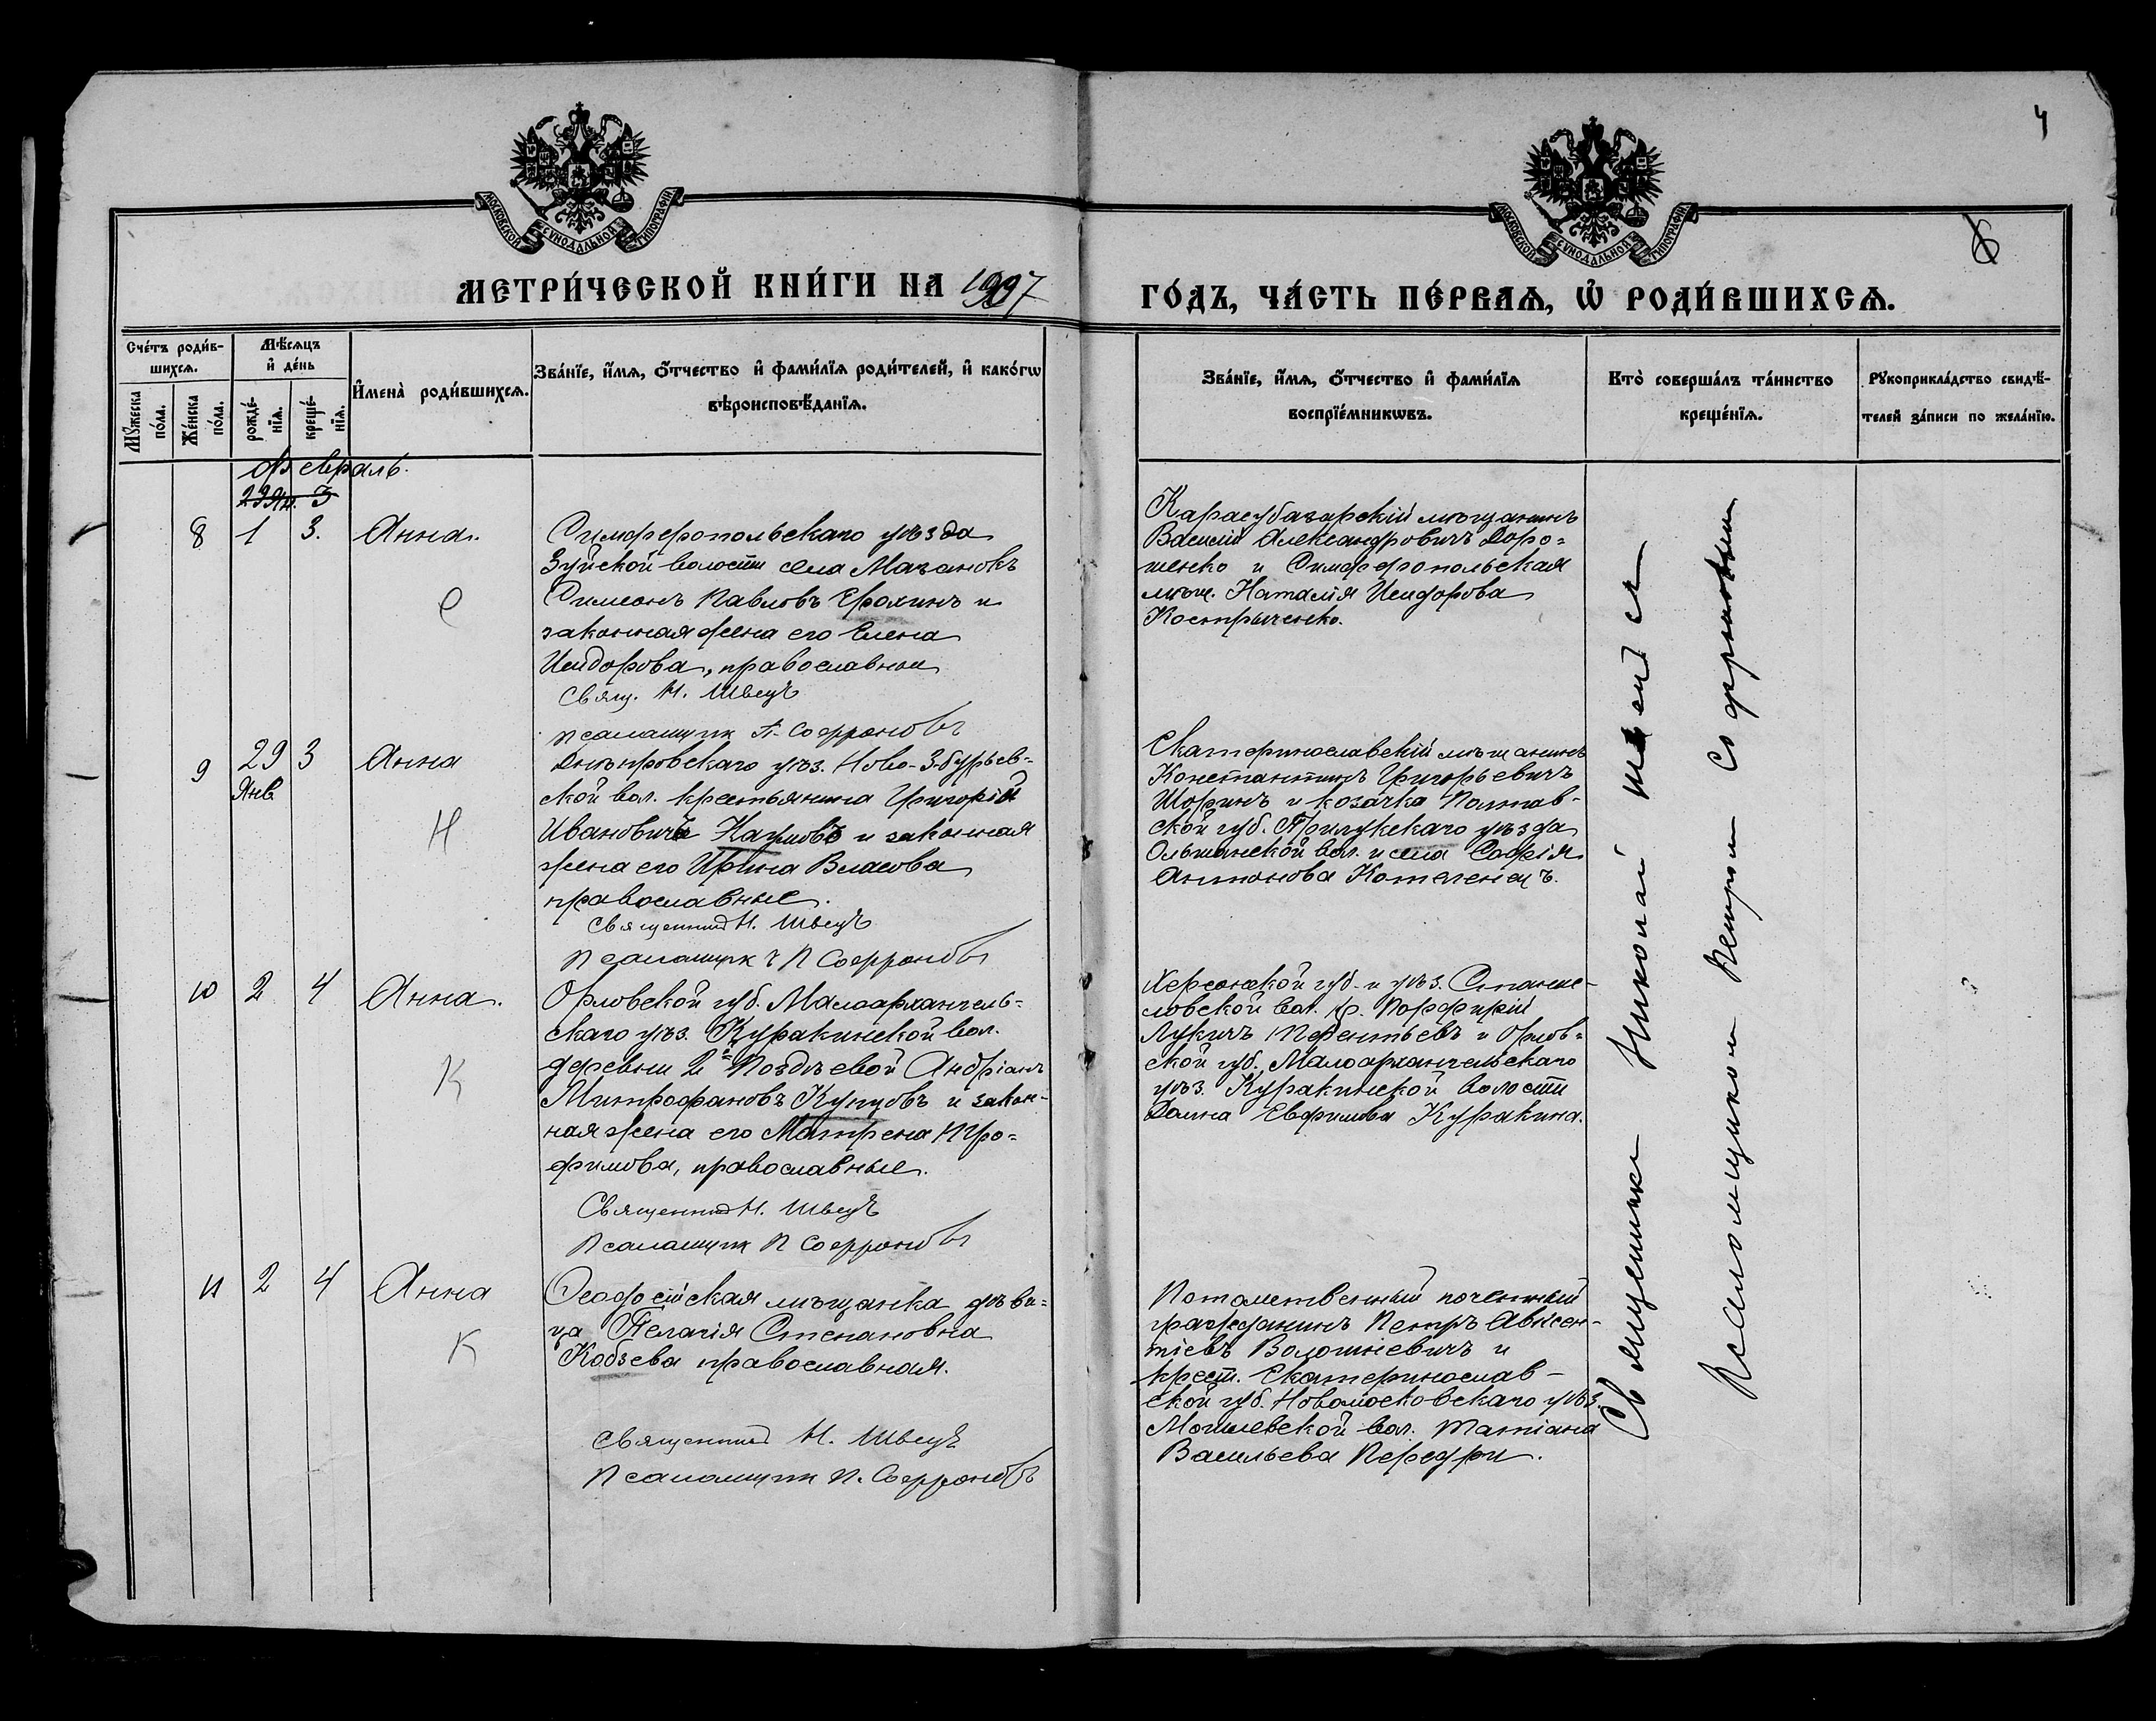 4
6
МОСКОВСКОЙ СѴНОДАЛЬНОЙ ТИПОГРАФІИ
МОСКОВСКОЙ СѴНОДАЛЬНОЙ ТИПОГРАФІИ
МЕТРИ́ЧЕСКОЙ КНИ́ГИ НА 1907
ГО́ДЪ, ЧА́СТЬ ПЕ́РВАѦ, Ѽ РОДИ́ВШИХСѦ.
Сче́тъ роди́в-
шихсѧ.
Мꙋжеска по́ла.
Же́нска по́ла.
Мѣ́сѧцъ
и҆ де́нь
рожде́-
нїѧ.
креще́-
нїѧ.
И҆мена̀ роди́вшихсѧ.
Зва́нїе, и҆́мѧ, ѻ҆́тчество и҆ фами́лїѧ роди́телей, и҆ како́гѡ
вѣроисповѣ́данїѧ.
Зва́нїе, и҆́мѧ, ѻ҆́тчество и҆ фами́лїѧ
воспрїе́мникѡвъ.
Кто̀ соверша́лъ та́инство
креще́нїѧ.
Рꙋкоприкла́дство свидѣ́-
телей за́писи по жела́нїю.
Февраль.
29 Ян. 3
8 1 3. Анна.
Симферопольскаго уѣзда
Зуйской волости села Мазанокъ
Симеонъ Павловъ Ерохинъ и
законная жена его Елена
Исидорова, православныи
Свящ. Н. Швецъ
псаломщик П. Софроновъ
С
Карасубазарскій мѣщанинъ
Василій Александровичъ Доро-
шенко и Симферопольская
мѣщ. Наталія Исидорова
Костриченко.
9 29 3 Анна
Янв.
Днѣпровскаго уѣз. Ново-Збурьев-
ской вол. крестьянина Григорій
Ивановичъ Наумовъ и законная
жена его Ирина Власова
православные.
Священник Н. Швецъ
Псаломщикъ П Софроновъ
Н
Екатеринославскій мѣщанинъ
Константинъ Григорьевичъ
Шоринъ и козачка Полтав-
ской губ. Прилукскаго уѣзда
Ольшанской вол. и села Софія
Антонова Котеленецъ.
10 2 4 Анна.
Орловской губ. Малоархангель-
скаго уѣз. Куракинской вол.
деревни 2й Поздѣевой Андріанъ
Митрофановъ Купцовъ и закон-
ная жена его Матрена Тро-
фимова, православные.
Священник Н. Швецъ
Псаломщик П Софроновъ
К
Херсонской губ. и уѣз. Станис-
ловской вол. кр. Порфирій
Лукичъ Терентьевъ и Орлов-
ской губ. Малоархангельскаго
уѣз. Куракинской волости
Домна Евфимова Куракина.
11 2 4 Анна
Феодосійская мѣщанка дѣви-
ца Пелагія Степановна
Кобзева православная.
Священник Н. Швецъ
Псаломщик П. Софроновъ
К
Потомственный почетный
гражданинъ Петръ Авксен-
тіевъ Волошкевичъ и
крест. Екатеринослав-
ской губ. Новомосковскаго уѣз.
Могилевской вол. Татіана
Васильева Передри.
Священникъ Николай Швецъ съ
Псаломщиком Петром Софроновым